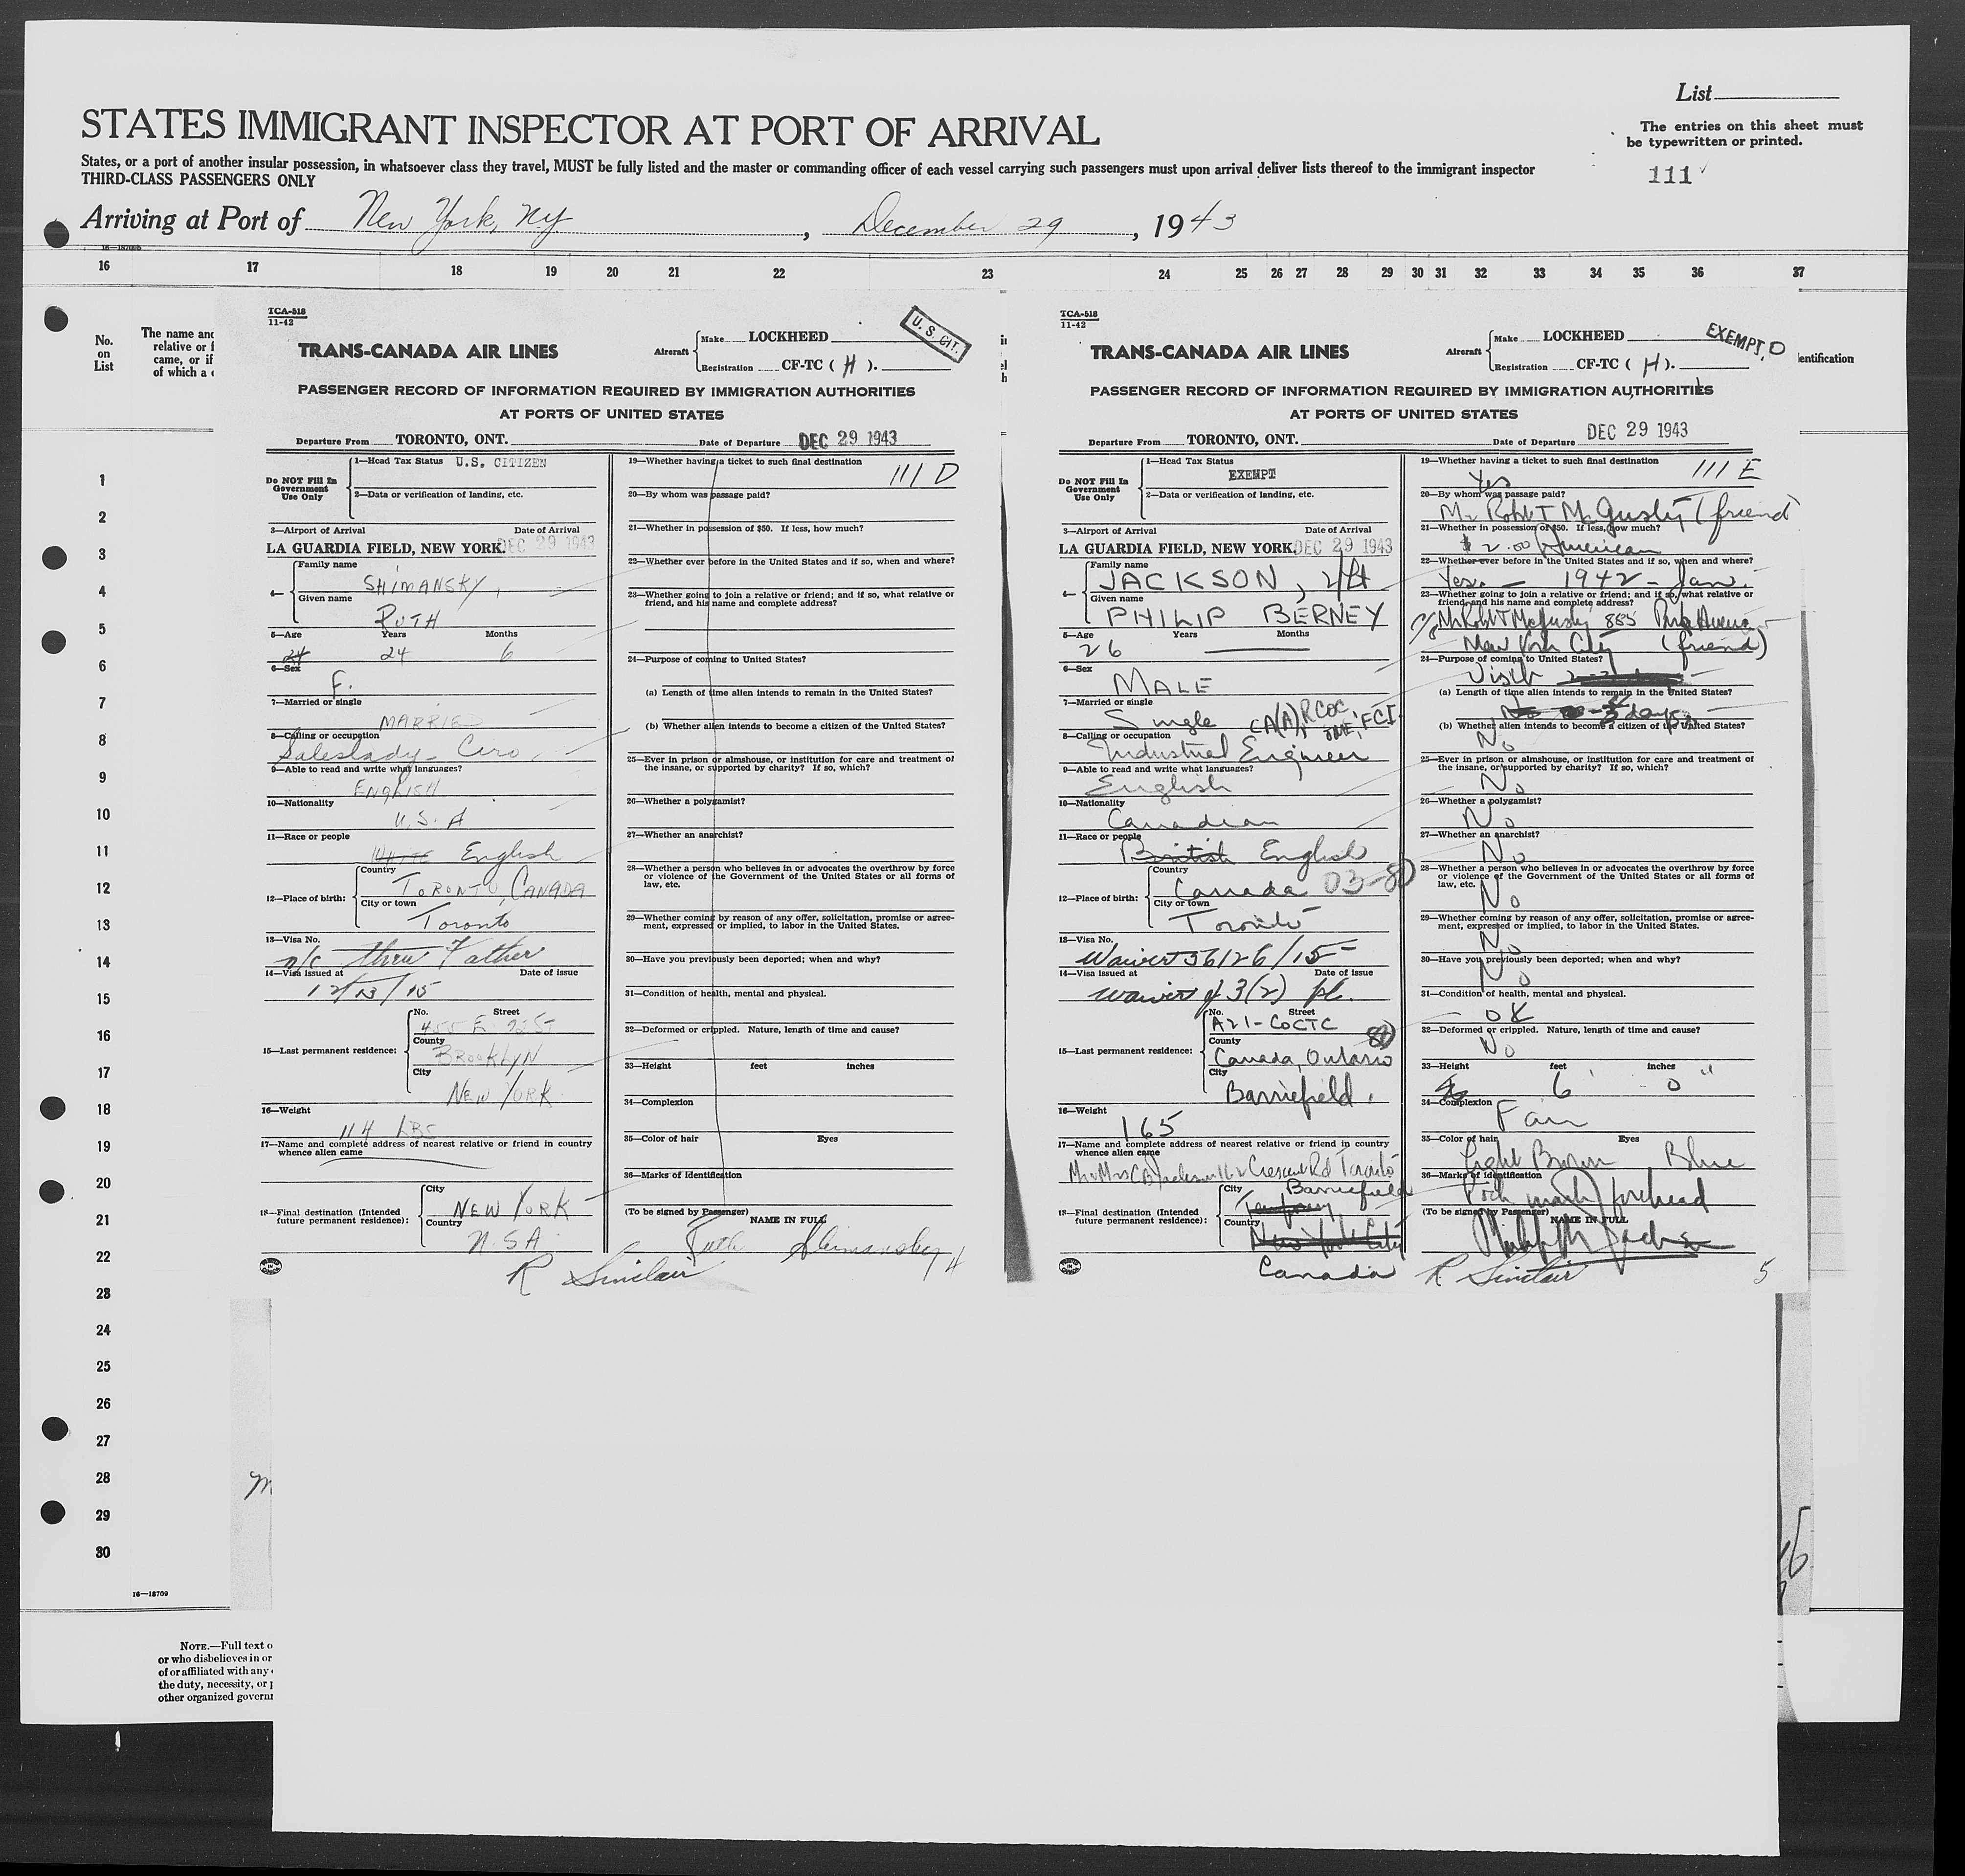 List
The entries on this sheet must
be typewritten or printed.
111
STATES IMMIGRANT INSPECTOR AT PORT OF ARRIVAL
States, or a port of another insular possession, in whatsoever class they travel, MUST be fully listed and the master or commanding officer of each vessel carrying such passengers must upon arrival deliver lists thereof to the immigrant inspector
THIRD-CLASS PASSENGERS ONLY
Arriving at Port of New York, N.Y. , December 29 , 1943
16 17 18 19 20 21 22 23 24 25 26 27 28 29 30 31 32 33 34 35 36 37
No.
on
List
The name and
relative or f
came, or if
of which a c
entification
1
2
3
4
5
6
7
8
9
10
11
12
13
14
15
16
17
18
19
20
21
22
23
24
25
26
27
28
29
30
16—18709
NOTE.—Full text o
or who disbelieves in or
of or affiliated with any
the duty, necessity, or p
other organized governm
TCA-518
11-42
U. S. CIT.
TRANS-CANADA AIR LINES
Aircraft
Make LOCKHEED
Registration CF-TC ( H ).
PASSENGER RECORD OF INFORMATION REQUIRED BY IMMIGRATION AUTHORITIES
AT PORTS OF UNITED STATES
Departure From TORONTO, ONT. Date of Departure DEC 29 1943
Do NOT Fill In
Government
Use Only
1—Head Tax Status U.S. CITIZEN
2—Data or verification of landing, etc.
3—Airport of Arrival Date of Arrival
LA GUARDIA FIELD, NEW YORK. DEC 29 1943
4—
Family name
SHIMANSKY,
Given name
RUTH
5—Age Years Months
24 24 6
6—Sex
F.
7—Married or single
MARRIED
8—Calling or occupation
Saleslady - Ciro
9—Able to read and write what languages?
ENGLISH
10—Nationality
U.S.A
11—Race or people
WHITE English
12—Place of birth:
Country
TORONTO, CANADA
City or town
Toronto
13—Visa No.
n/c thru Father
14—Visa issued at Date of issue
12/13/15
15—Last permanent residence:
No. Street
455 E 22 ST
County
BROOKLYN
City
NEW YORK
16—Weight
114 LBS
17—Name and complete address of nearest relative or friend in country
whence alien came
18—Final destination (Intended
future permanent residence):
City
NEW YORK
Country
U.S.A
19—Whether having a ticket to such final destination
111 D
20—By whom was passage paid?
21—Whether in possession of $50. If less, how much?
22—Whether ever before in the United States and if so, when and where?
23—Whether going to join a relative or friend; and if so, what relative or
friend, and his name and complete address?
24—Purpose of coming to United States?
(a) Length of time alien intends to remain in the United States?
(b) Whether alien intends to become a citizen of the United States?
25—Ever in prison or almshouse, or institution for care and treatment of
the insane, or supported by charity? If so, which?
26—Whether a polygamist?
27—Whether an anarchist?
28—Whether a person who believes in or advocates the overthrow by force
or violence of the Government of the United States or all forms of
law, etc.
29—Whether coming by reason of any offer, solicitation, promise or agree-
ment, expressed or implied, to labor in the United States.
30—Have you previously been deported; when and why?
31—Condition of health, mental and physical.
32—Deformed or crippled. Nature, length of time and cause?
33—Height feet inches
34—Complexion
35—Color of hair Eyes
36—Marks of Identification
(To be signed by Passenger) NAME IN FULL
Ruth Shimansky
R Sinclair 4
TCA-518
11-42
EXEMPT, D
TRANS-CANADA AIR LINES
Aircraft
Make LOCKHEED
Registration CF-TC ( H ).
PASSENGER RECORD OF INFORMATION REQUIRED BY IMMIGRATION AUTHORITIES
AT PORTS OF UNITED STATES
Departure From TORONTO, ONT. Date of Departure DEC 29 1943
Do NOT Fill In
Government
Use Only
1—Head Tax Status
EXEMPT
2—Data or verification of landing, etc.
3—Airport of Arrival Date of Arrival
LA GUARDIA FIELD, NEW YORK DEC 29 1943
4—
Family name
JACKSON, 2/Lt
Given name
PHILIP BERNEY
5—Age Years Months
26
6—Sex
MALE
7—Married or single
Single CA(A), RCOC
8—Calling or occupation
Industrial Engineer
9—Able to read and write what languages?
English
10—Nationality
Canadian
11—Race or people
British English
12—Place of birth:
Country
Canada 03-80
City or town
Toronto
13—Visa No.
Waiver 56126/15
14—Visa issued at Date of issue
waiver of 3(2)
15—Last permanent residence:
No. Street
A21-COCTC
County 80
Canada, Ontario
City
Barriefield.
16—Weight
165
17—Name and complete address of nearest relative or friend in country
whence alien came
Mr & Mrs C B Jackson Crescent Rd Toronto
18—Final destination (Intended
future permanent residence):
City Barriefield
Temporary
Country
New York City
Canada
19—Whether having a ticket to such final destination
Yes 111 E
20—By whom was passage paid?
Mr Robt T McGusty (friend
21—Whether in possession of $50. If less, how much?
$2.00 American
22—Whether ever before in the United States and if so, when and where?
Yes. — 1942 - Jan.
23—Whether going to join a relative or friend; and if so, what relative or
friend, and his name and complete address?
c/o Mr Robt T McGusty 885 Park Avenue
New York City (friend)
24—Purpose of coming to United States?
Visit
(a) Length of time alien intends to remain in the United States?
days
(b) Whether alien intends to become a citizen of the United States?
No
25—Ever in prison or almshouse, or institution for care and treatment of
the insane, or supported by charity? If so, which?
No
26—Whether a polygamist?
No
27—Whether an anarchist?
No
28—Whether a person who believes in or advocates the overthrow by force
or violence of the Government of the United States or all forms of
law, etc.
No
29—Whether coming by reason of any offer, solicitation, promise or agree-
ment, expressed or implied, to labor in the United States.
No
30—Have you previously been deported; when and why?
No
31—Condition of health, mental and physical.
OK
32—Deformed or crippled. Nature, length of time and cause?
No
33—Height feet inches
6' 0"
34—Complexion
Fair
35—Color of hair Eyes
Light Brown Blue
36—Marks of identification
Pock mark forehead
(To be signed by Passenger) NAME IN FULL
R. Sinclair 5